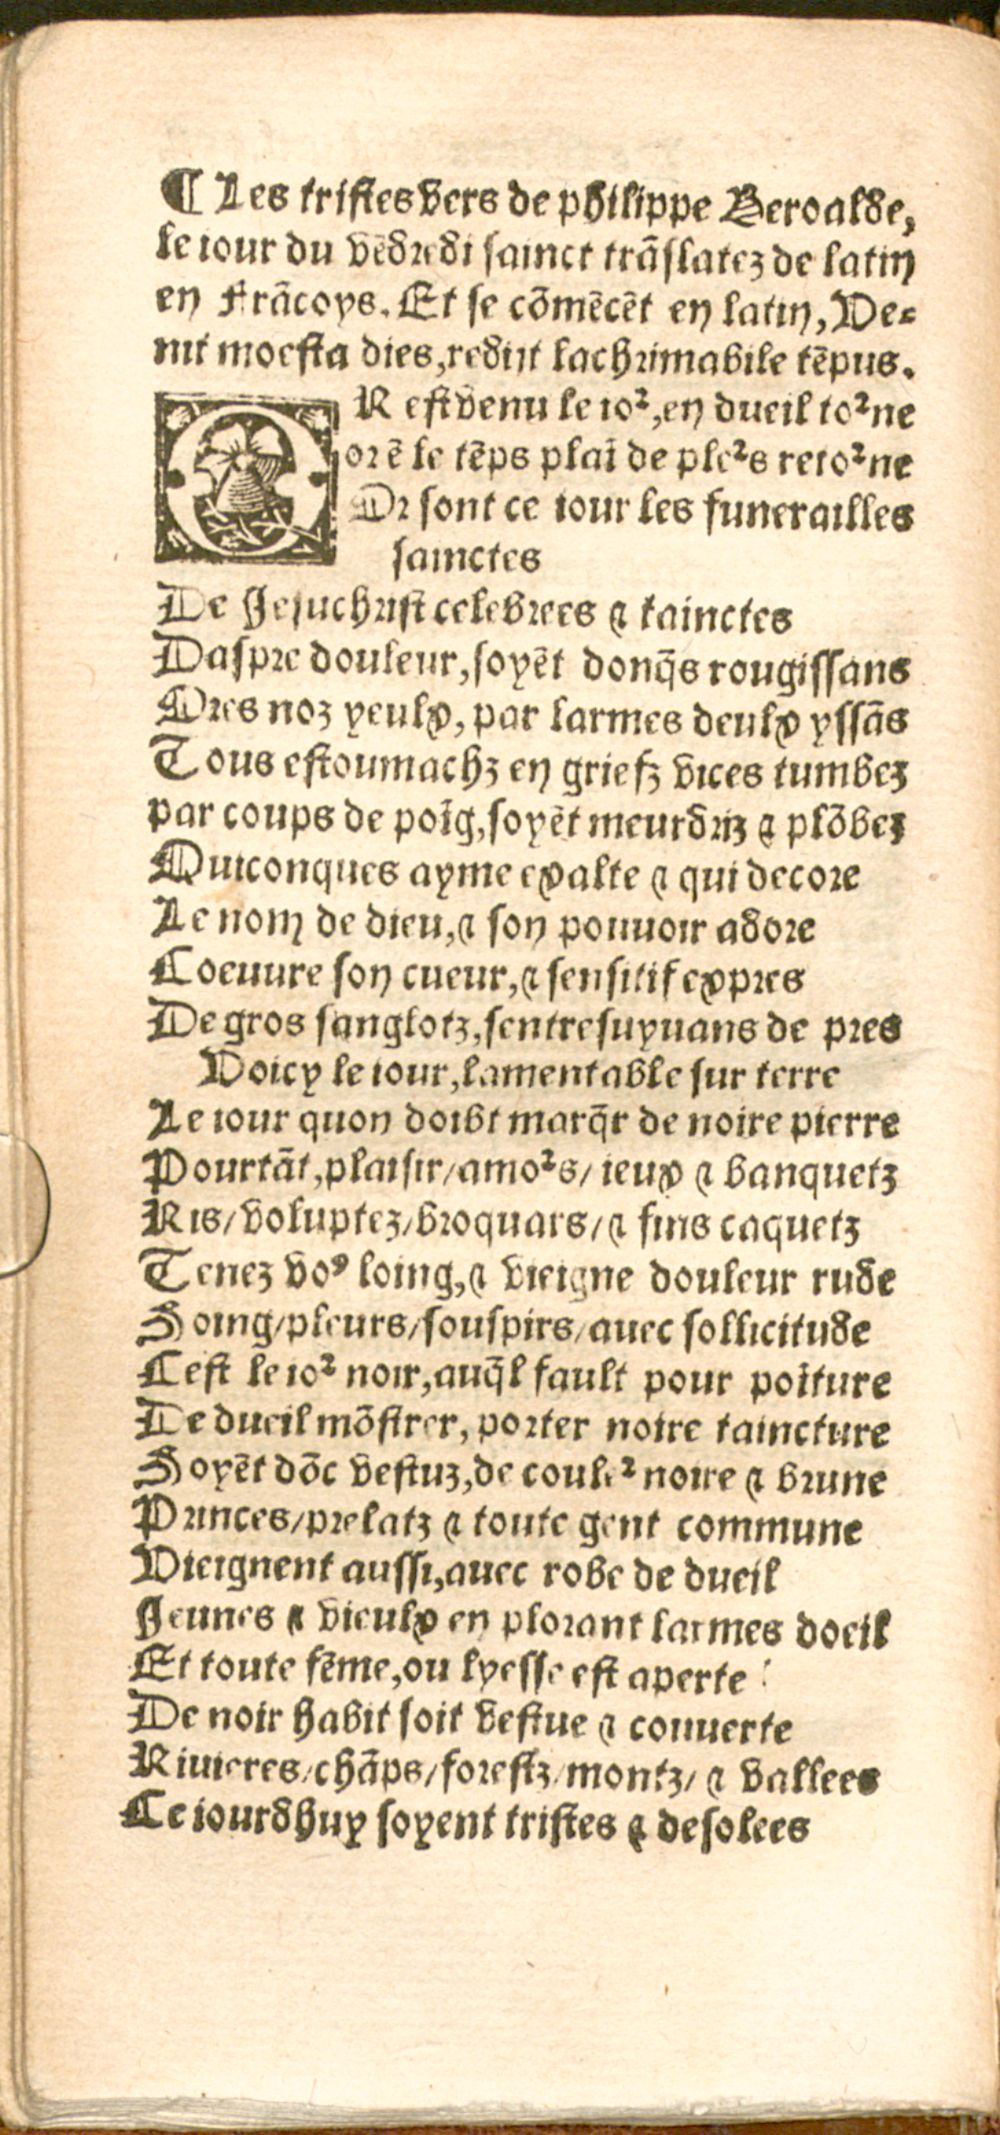 ¶ Les tristes vers de philippe Beroalde,
le iour du vēdredi sainct trāslatez de latin
en Frācoys. Et se cōmēcēt en latin, Ve-
nit moesta dies, redijt lachrimabile tēpus.
OR est venu le ioꝛ, en dueil toꝛne
ore le tēps plaī de pleꝛs retoꝛne
Or sont ce iour les funerailles
sainctes
De Jesuchrist celebrees ⁊ tainctes
Daspre douleur, soyēt donq̄s rougissans
Ores noz yeulx, par larmes deulx yssās
Tous estoumachz en griefz vices tumbez
par coups de poīg, soyēt meurdriz ⁊ plōbez
Quiconques ayme exalte ⁊ qui decore
Le nom de dieu, ⁊ son pouuoir adore
Coeuure son cueur, ⁊ sensitif expres
De gros sanglotz, sentresuyuans de pres
Voicy le iour, lamentable sur terre
Le iour quon doibt marq̄r de noire pierre
Pourtāt, plaisir/ amoꝛs/ ieux ⁊ banquetz
Ris/ voluptez/ broquars/ ⁊ fins caquetz
Tenez voꝰ loing, ⁊ vieigne douleur rude
Soing/ pleurs/ souspirs/ auec sollicitude
Cest le ioꝛ noir, auq̄l fault pour poīture
De dueil mōstrer, porter noire taincture
Soyēt dōc vestuz, de couleꝛ noire ⁊ brune
Princes/ prelatz ⁊ toute gent commune
Vieignent aussi, auec robe de dueil
Jeunes ⁊ vieulx en plorant larmes doeil
Et toute fēme, ou lyesse est aperte
De noir habit soit vestue ⁊ couuerte
Riuieres/ chāps/ forestz/ montz/ ⁊ vallees
Ce iourdhuy soyent tristes ⁊ desolees